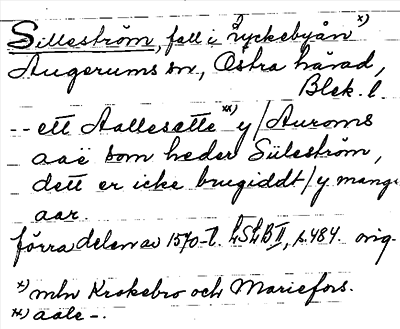 Silleström, fall i Lyckebyån x)
Augerums sn, Östra härad,
Blek. l.
-- ett Aallesette xx) y / Auroms
aaë som heder Süleström,
dett er icke brugiddt / y mange
aar.
förra delen av 1570-t. hSHB II, s. 484. orig.
x) mln Krokebro och Mariefors.
xx) aale –.